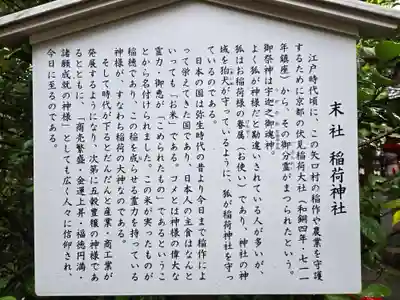 末社 稲荷神社
江戸時代頃に、この矢口村の稲作や農業を守護
するために京都の伏見稲荷大社（和銅四年・七一一
年鎮座）から、その御分霊がまつられたという。
御祭神は宇迦之御魂神。
よく狐が神様だと勘違いされている人が多いが、
狐はお稲荷様の眷属（お使い）であり、神社の神
域を狛犬が守っているように、狐が稲荷神社を守っ
ているのである。
日本の国は弥生時代の昔より今日まで稲作によ
って栄えてきた国であり、日本人の主食はなんと
いっても「お米」である。コメとは神様の偉大な
霊力・御恵が「こめられたもの」であるというこ
とから名付けられました。この米が実ったものが
稲穂であり、この稲を成らせる霊力を持っている
神様が、すなわち稲荷の大神なのである。
そして時代が下るとだんだんと産業・商工業が
発展するようになり、次第に五穀豊穣の神様であ
るとともに、「商売繁盛・金運上昇・福徳円満・
諸願成就の神様」としても広く人々に信仰され、
今日に至るのである。